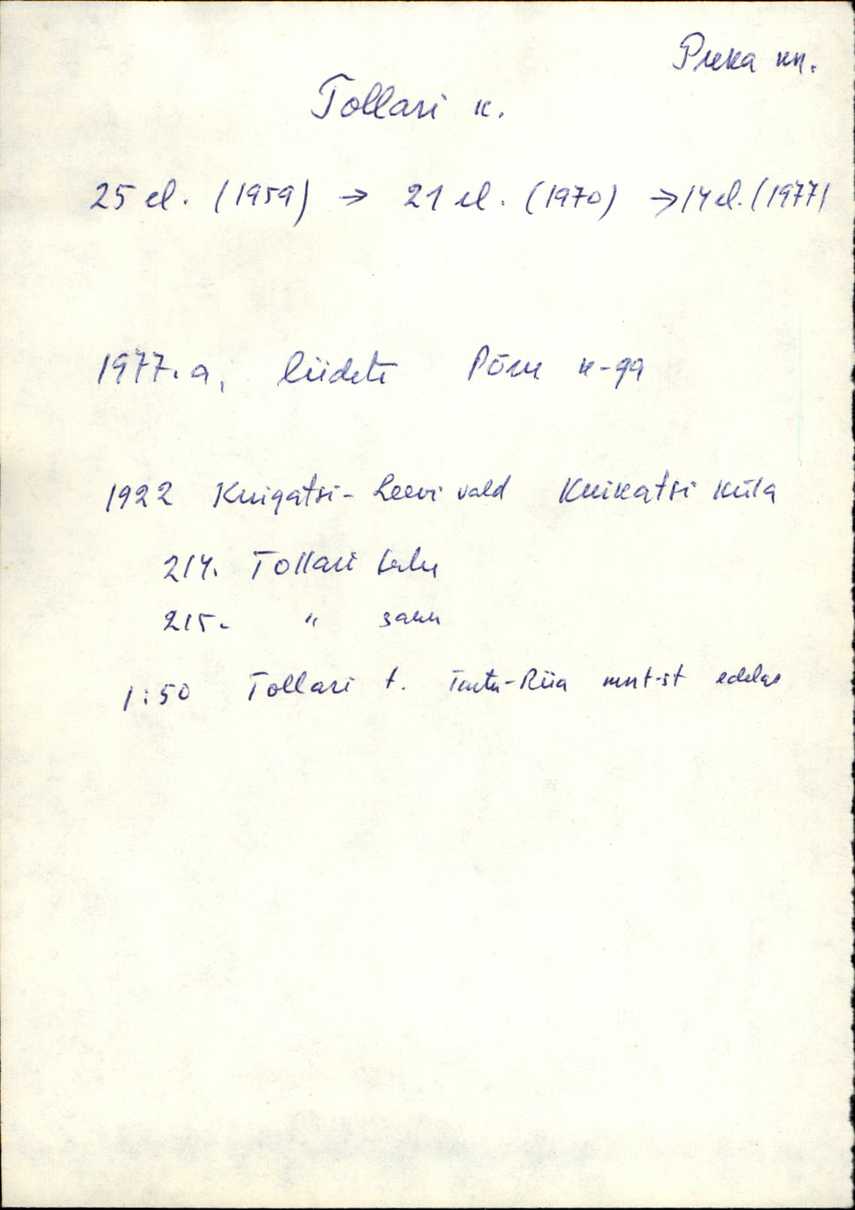 Puka kn.
Tollari k.
25 el. (1959) → 21 el. (1970) → 14 el. (1977)
1977. a. liideti Põru k-ga
1922 Kuigatsi- Leevi vald Kuikatsi küla
214. Tollari talu
215. " saun
1:50 Tollari t. Tartu-Riia mnt-st edelas